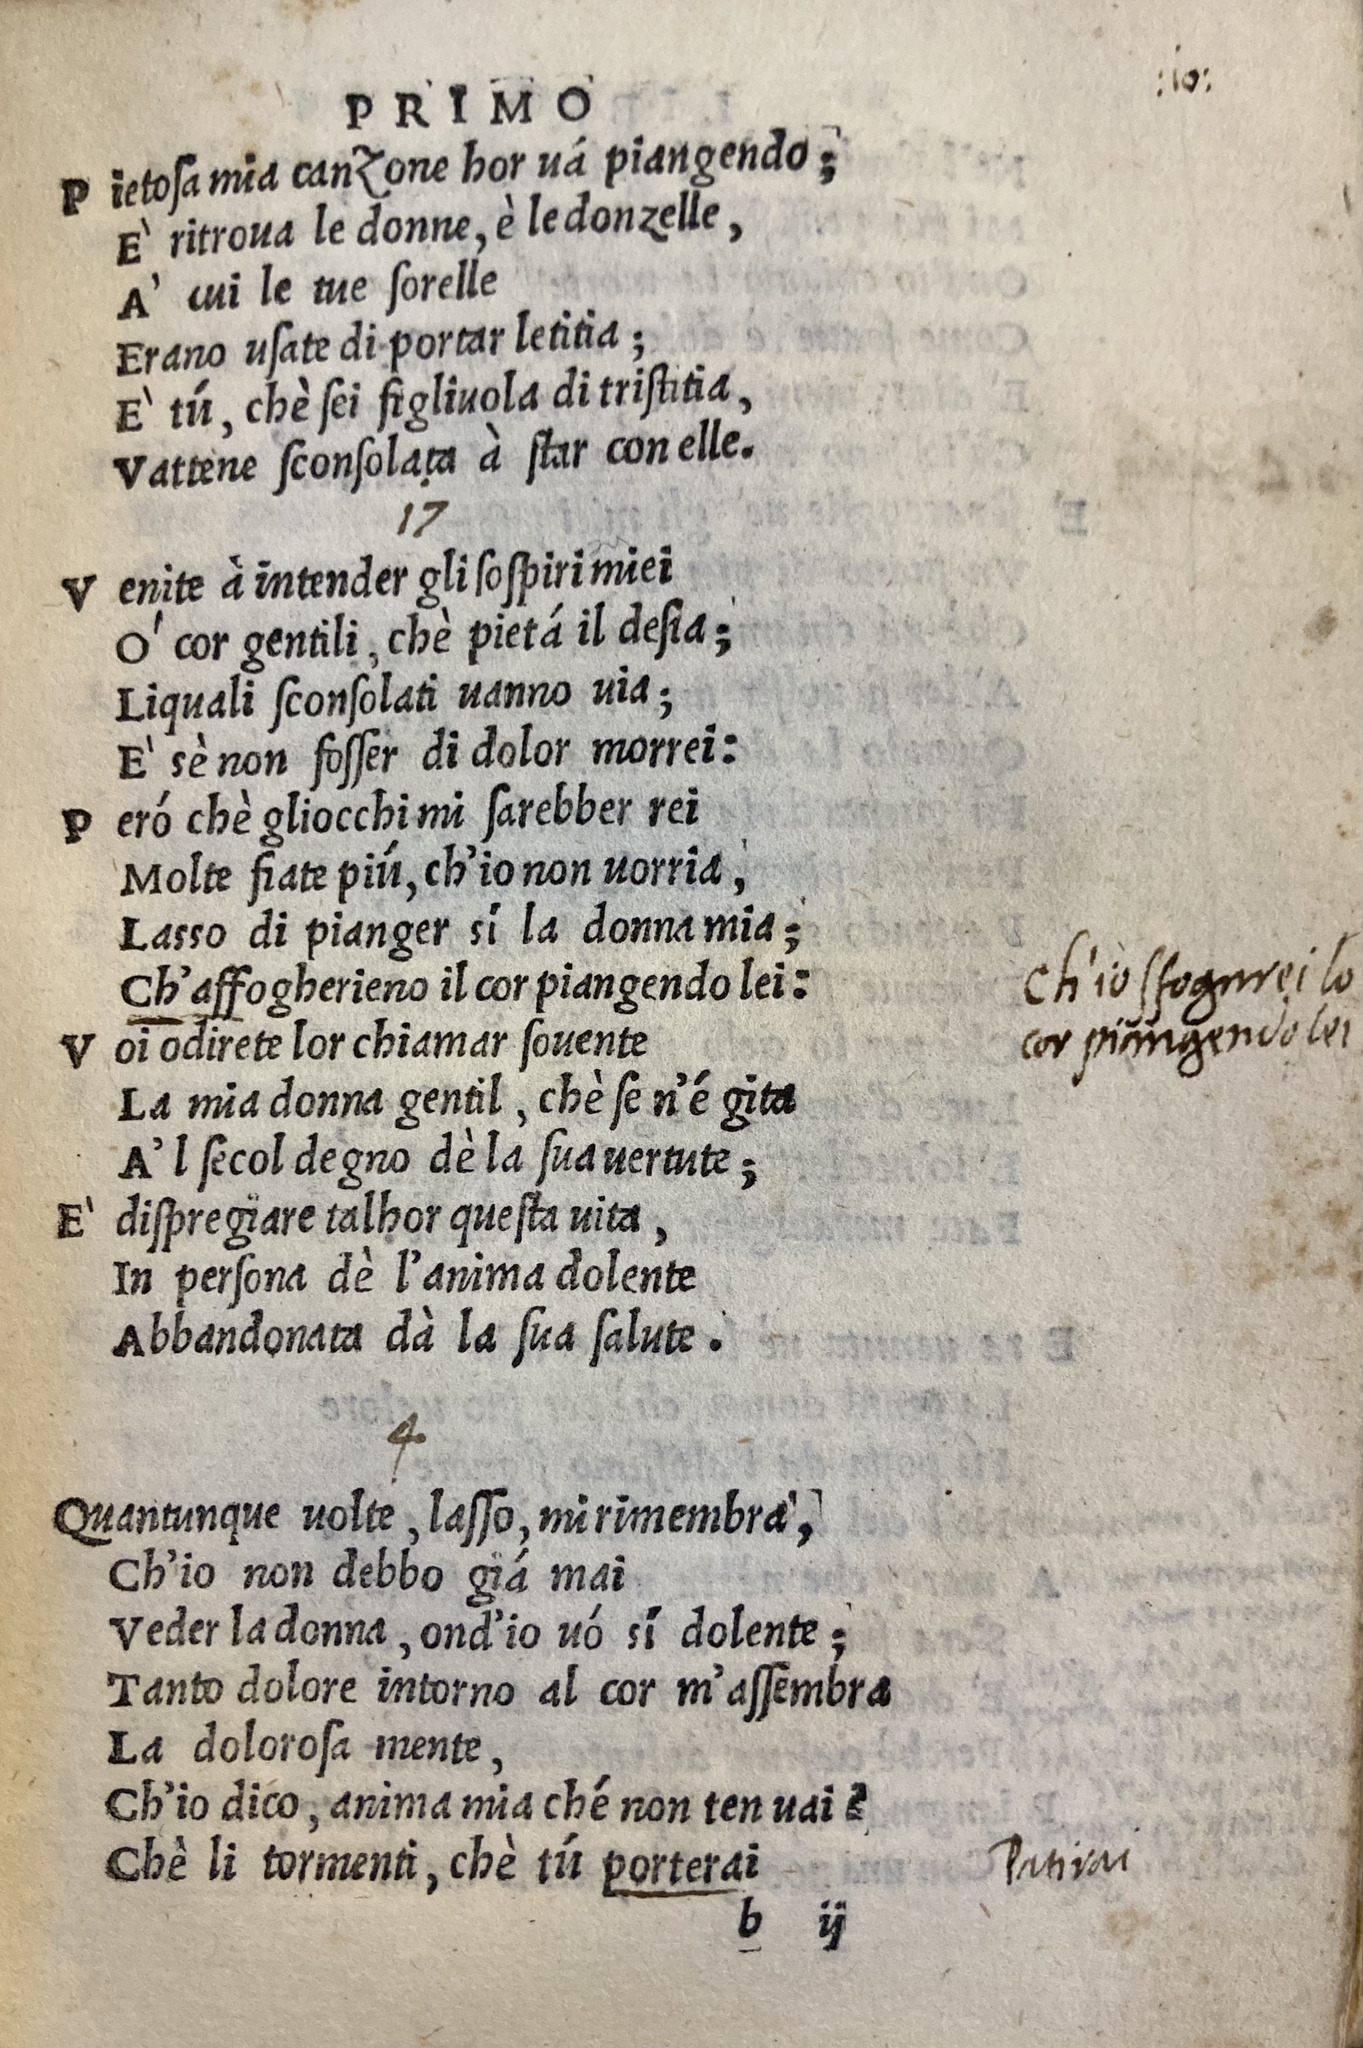 PRIMO
:io:
Pietoſa mia canzone hor uá piangendo;
E' ritroua le donne, è le donzelle,
A' cui le tue ſorelle
Erano uſate di portar letitia;
E' tú, chè ſei figliuola di triſtitia,
Vattene ſconſolata à ſtar con elle.
17
Venite à intender gli ſoſpiri miei
O' cor gentili, chè pietá il deſia;
Liquali ſconſolati uanno uia;
E' sè non foſſer di dolor morrei:
Peró chè gliocchi mi ſarebber rei
Molte fiate piú, ch'io non uorria,
Lasso di pianger sí la donna mia;
Ch'affogherieno il cor piangendo lei:
Ch'io sfogarei lo
cor piangendo lei
Voi odirete lor chiamar ſouente
La mia donna gentil, chè ſe n'é gita
A'l ſecol degno dè la ſua uertute;
E' diſpregiare talhor queſta uita,
In perſona dè l'anima dolente
Abbandonata dà la ſua ſalute.
4.
Quantunque uolte, laſſo, mi rimembra,
Ch'io non debbo giá mai
Veder la donna, ond'io uó sí dolente;
Tanto dolore intorno al cor m'aſſembra
La doloroſa mente,
Ch'io dico, anima mia ché non ten uai?
Chè li tormenti, chè tú porterai
Patirai
b ij